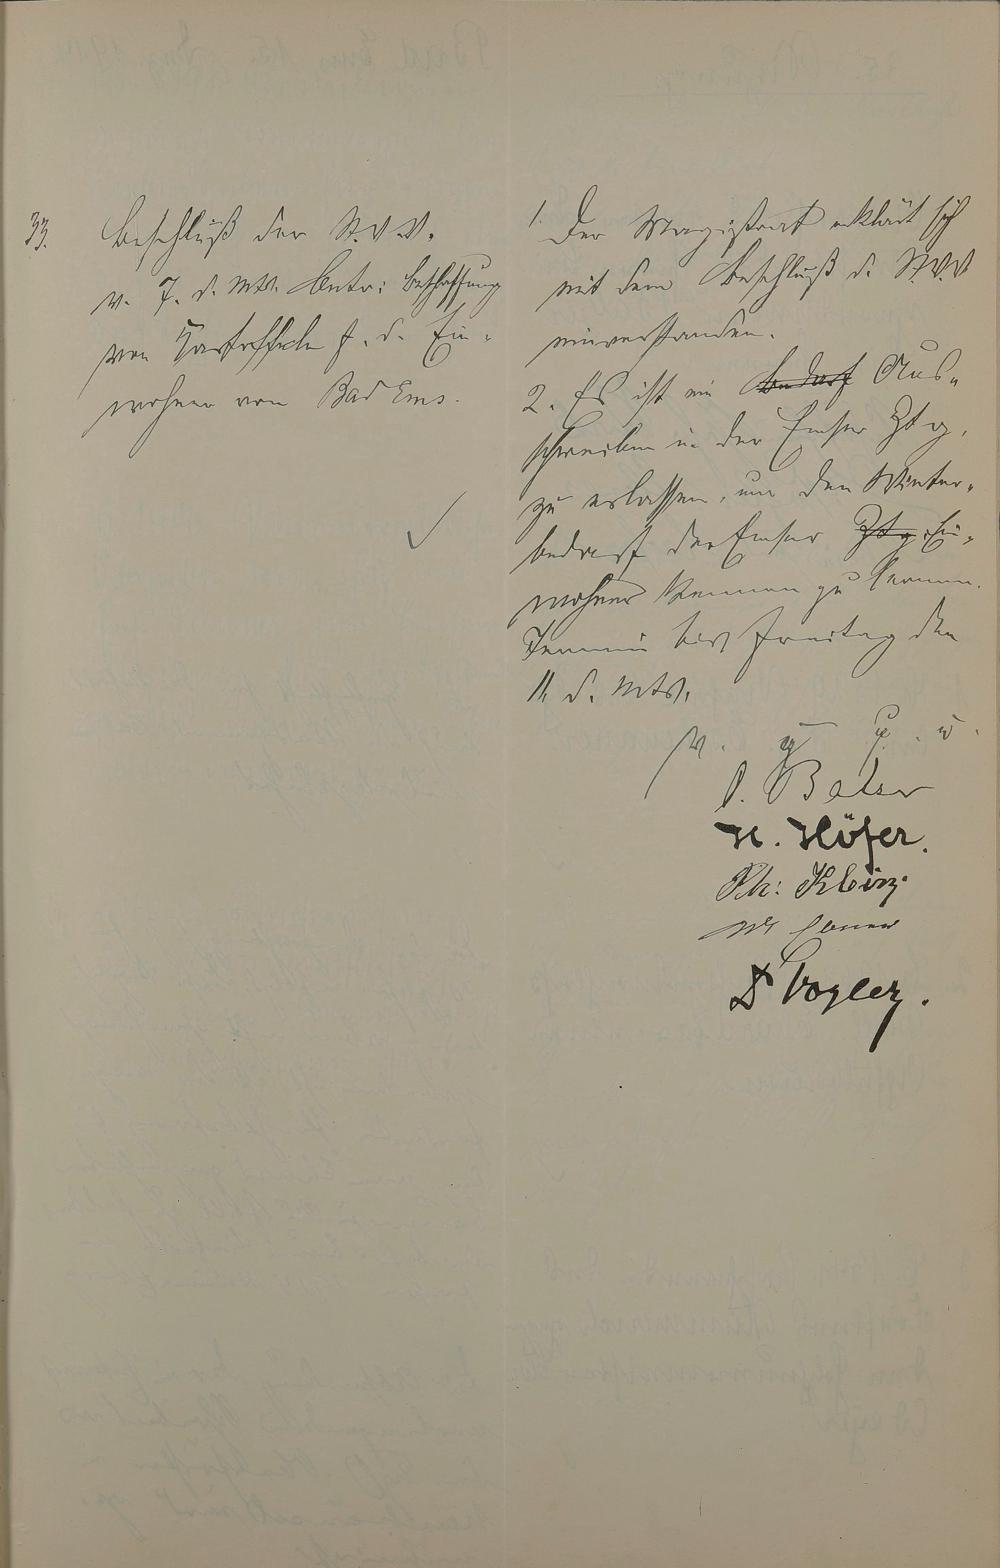 33.
Beschluß der St.V.V.
v. 7. d. Mts. Betr: Beschaffung
von Kartoffeln f. d. Ein-
wohner von Bad Ems.
1. Der Magistrat erklärt sich
mit dem Beschluß d. St.V.V
einverstanden.
2. Es ist ein Bedarf Aus-
schreiben in der Emser Ztg.
zu erlassen, um den Winter-
bedarf der Emser Ztg Ein-
wohner kennen zu lernen.
Termin bis Freitag den
11. d. Mts.
v. g. u.
H. Höfer.
Ph: Klein
Dr Vogler.